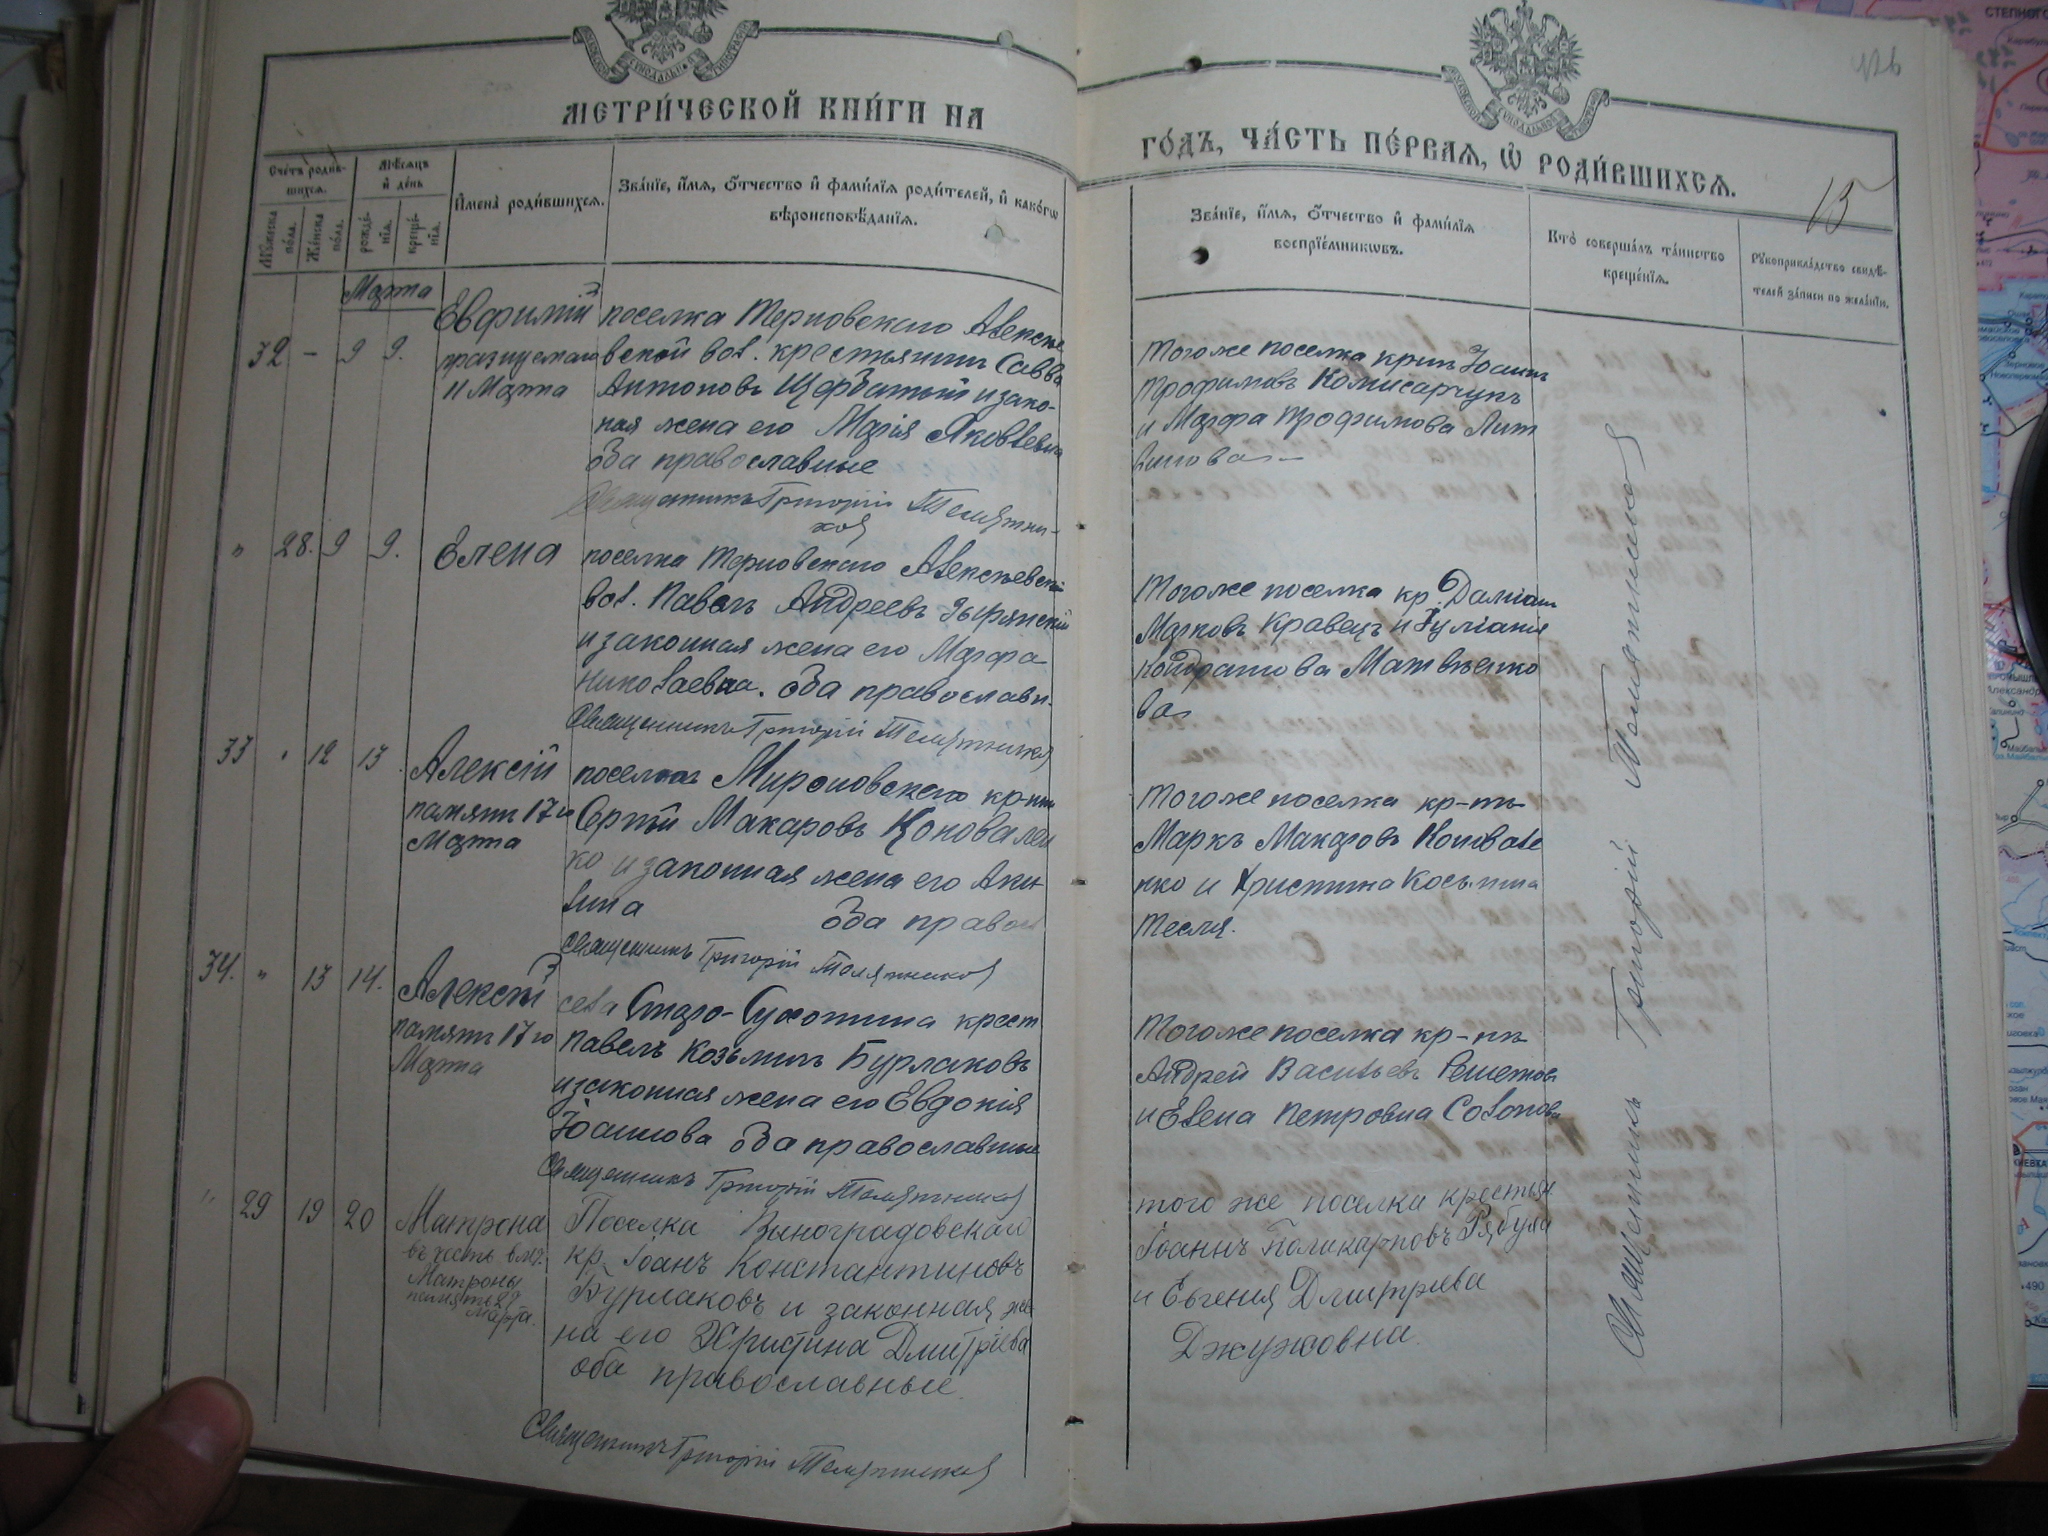 МЕТРИ́ЧЕСКОЙ КНИ́ГИ НА
ГО́ДЪ, ЧА́СТЬ ПЕ́РВАЯ, Ѡ РОДИ́ВШИХСЯ.
15
Сче́тъ роди́в-
шихся.
Мѣ́сяцъ
и де́нь
Мꙋ́жеска
по́ла.
Же́нска
по́ла.
рожде́-
нїя.
креще́-
нїя.
Имена̀ роди́вшихся.
Зва́нїе, и́мя, ѻ́тчество и фами́лїя роди́телей, и како́гѡ
вѣроисповѣ́данїя.
Зва́нїе, и́мя, ѻ́тчество и фами́лїя
воспрїе́мникѡвъ.
Кто̀ соверша́лъ та́инство
креще́нїя.
Рꙋкоприкла́дство свидѣ́-
телей за́писи по жела́нїю.
Марта
32 - 9 9.
Евфимій
празнуемаго
11 Марта
поселка Терновскаго Алексѣе
вской вол. крестьянинъ Савва
Антоновъ Щербатый и зако-
ная жена его Марія Яковлевна
оба православные
Священникъ Григорій
тогоже поселка крнинъ Іоаннъ
Трофимовъ Комисарчукъ
и Марфа Трофимова Лит
винова
" 28. 9 9.
Елена
поселка Терновскаго Алексѣевской
вол. Павелъ Андреевъ Зырянскій
и законная жена его Марфа
Николаевна. оба православн.
Священникъ Григорій
тогоже поселка кр. Даміанъ
Марковъ Кравецъ и Іуліанія
Кондратова Матвѣенко
ва
33 " 12 13
Алексій
память 17го
Марта
поселка Мироновскаго кр-нин
Сергѣй Макаровъ Коновален
ко и законная жена его Аки
лина оба правос
Священникъ Григорій
тогоже поселка кр-нъ
Маркъ Макаровъ Коновале
нко и Христина Косьмина
Тесля.
34. " 13 14.
Алексій
память 17го
Марта
села Старо-Сухотина крест
Павелъ Козьминъ Бурлаковъ
и законная жена его Евдокія
Іоаннова оба православные
Священникъ Григорій
тогоже поселка кр-нъ
Андрей Васильевъ Решетов
и Елена Петровна Солонова
" 29 19 20
Матрона
въ честь
Матроны
память 27
Марта.
Поселка Виноградовскаго
кр. Іоанъ Константиновъ
Бурлаковъ и законная же
на его Христина Дмитріева
оба православные.
Священникъ Григорій
того же поселка крестьян.
Іоаннъ Поликарповъ Рябуха
и Евгенія Дмитріева
Джужовна.
Священникъ Григорій